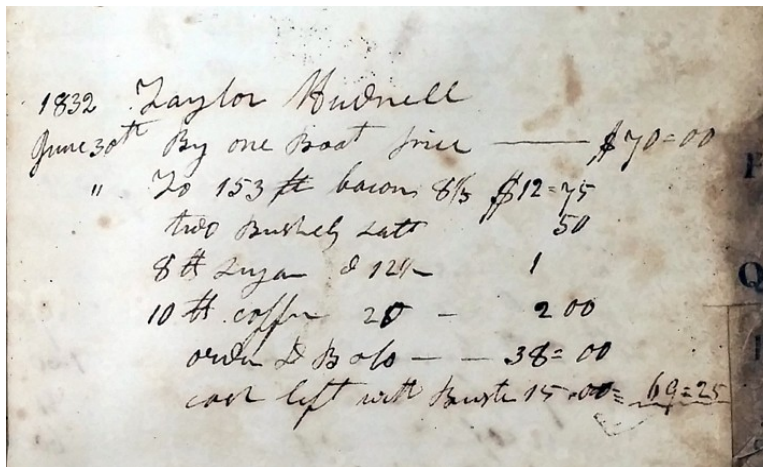 1832 Taylor Hudnell
June 30th By one Boat price — $70=00
" To 153 ℔ bacon 8⅓ $12=75
two Bushels Salt 50
8 ℔ Sugar @ 12½ 1
10 ℔ coffee 20 — 2 00
order D Bolo — — 38=00
cash left with 15.00= 69=25
P
Q